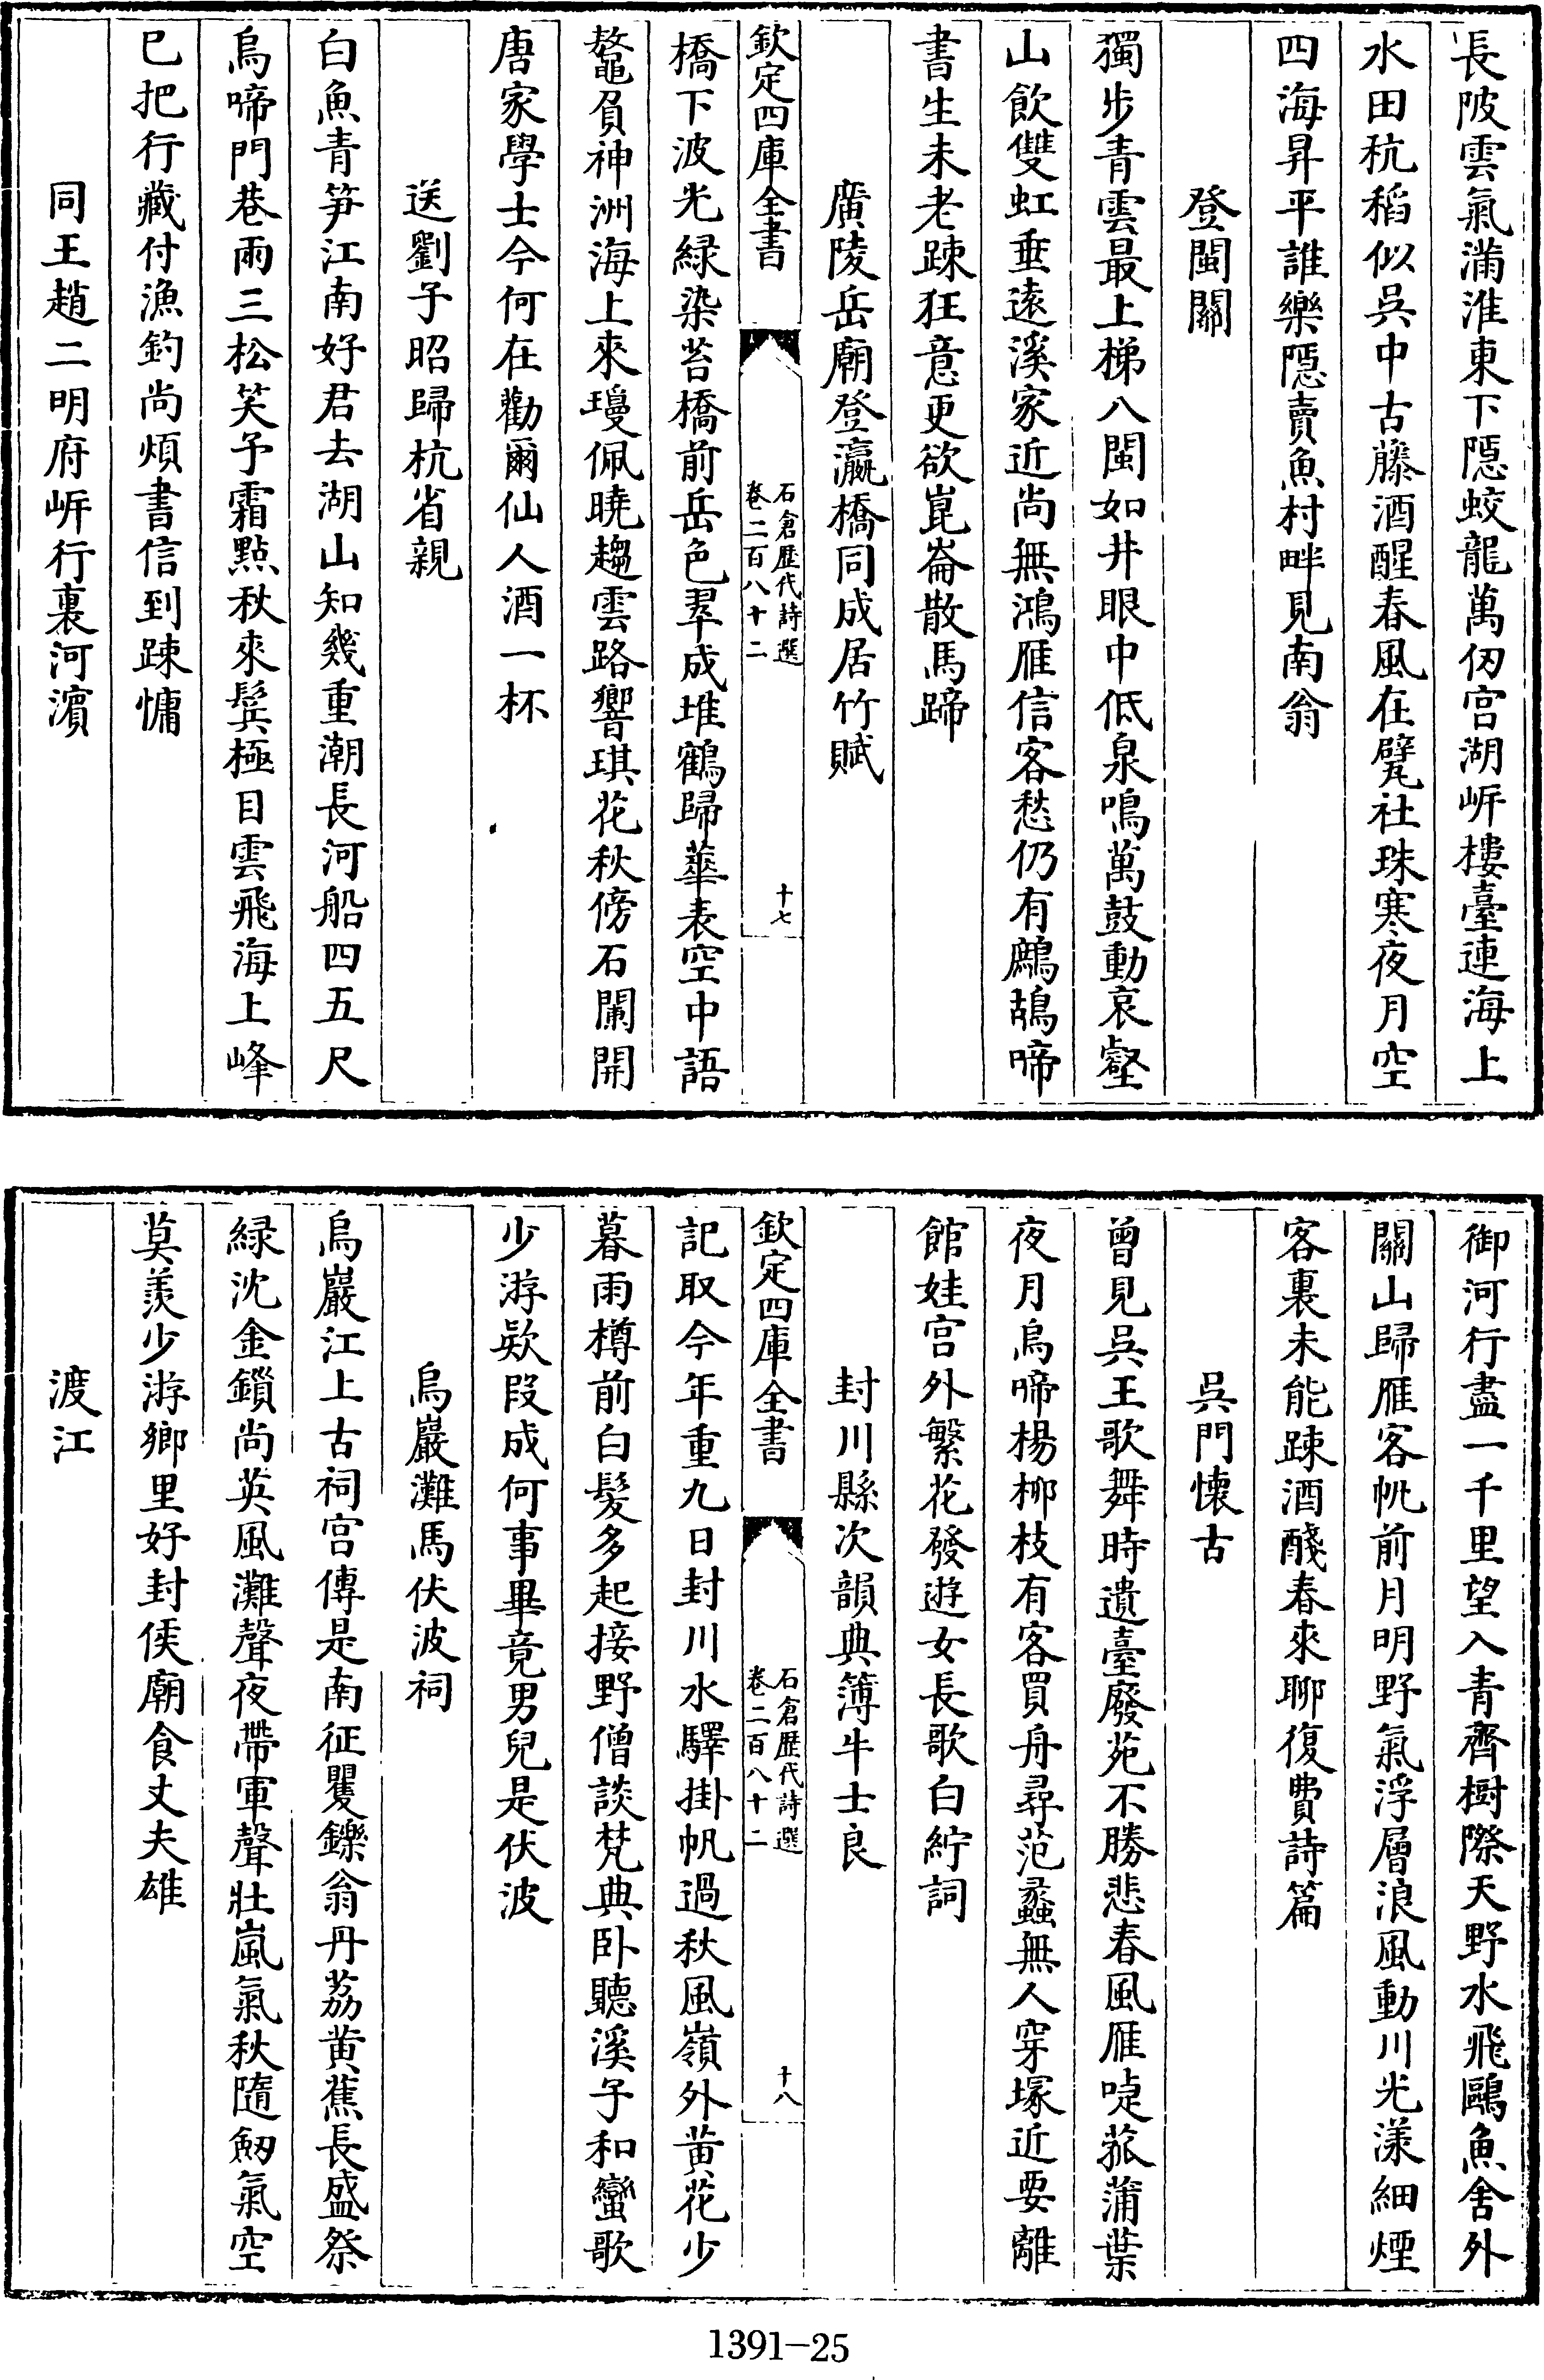 長陂雲氣滿淮東下隱蛟龍萬仭宫湖㟁樓臺連海上
水田秔稻似吳中古藤酒醒春風在甓社珠寒夜月空
四海昇平誰樂隱賣魚村畔見南翁
登閩關
獨步青雲最上梯八閩如井眼中低泉鳴萬鼓動哀壑
山飲雙虹垂遠溪家近尚無鴻雁信客愁仍有鷓鴣啼
書生未老踈狂意更欲崑崙散馬蹄
廣陵岳廟登瀛橋同成居竹賦
欽定四庫全書
石倉歴代詩選
卷二百八十二
十七
橋下波光緑染苔橋前岳色翠成堆鶴歸華表空中語
鼇負神洲海上來瓊佩曉趨雲路響琪花秋傍石闌開
唐家學士今何在勸爾仙人酒一杯
送劉子昭歸杭省親
白魚青笋江南好君去湖山知幾重潮長河船四五尺
烏啼門巷雨三松笑予霜點秋來鬂極目雲飛海上峰
已把行藏付漁釣尚煩書信到踈慵
同王趙二明府㟁行裏河濵
御河行盡一千里望入青齊樹際天野水飛鷗魚舍外
關山歸雁客帆前月明野氣浮層浪風動川光漾細煙
客裏未能踈酒醆春來聊復費詩篇
吳門懐古
曾見吳王歌舞時遺臺廢苑不勝悲春風雁唼菰蒲葉
夜月烏啼楊柳枝有客買舟尋范蠡無人穿塚近要離
館娃宫外繁花發遊女長歌白紵詞
封川縣次韻典簿牛士良
欽定四庫全書
石倉歴代詩選
卷二百八十二
十八
記取今年重九日封川水驛掛帆過秋風嶺外黄花少
暮雨樽前白髮多起接野僧談梵典卧聽溪子和蠻歌
少游欵段成何事畢竟男兒是伏波
烏巖灘馬伏波祠
烏巖江上古祠宫傳是南征矍鑠翁丹荔黄蕉長盛祭
緑沈金鎖尚英風灘聲夜帶軍聲壯嵐氣秋隨劒氣空
莫羨少游鄉里好封侯廟食丈夫雄
渡江
1391-25